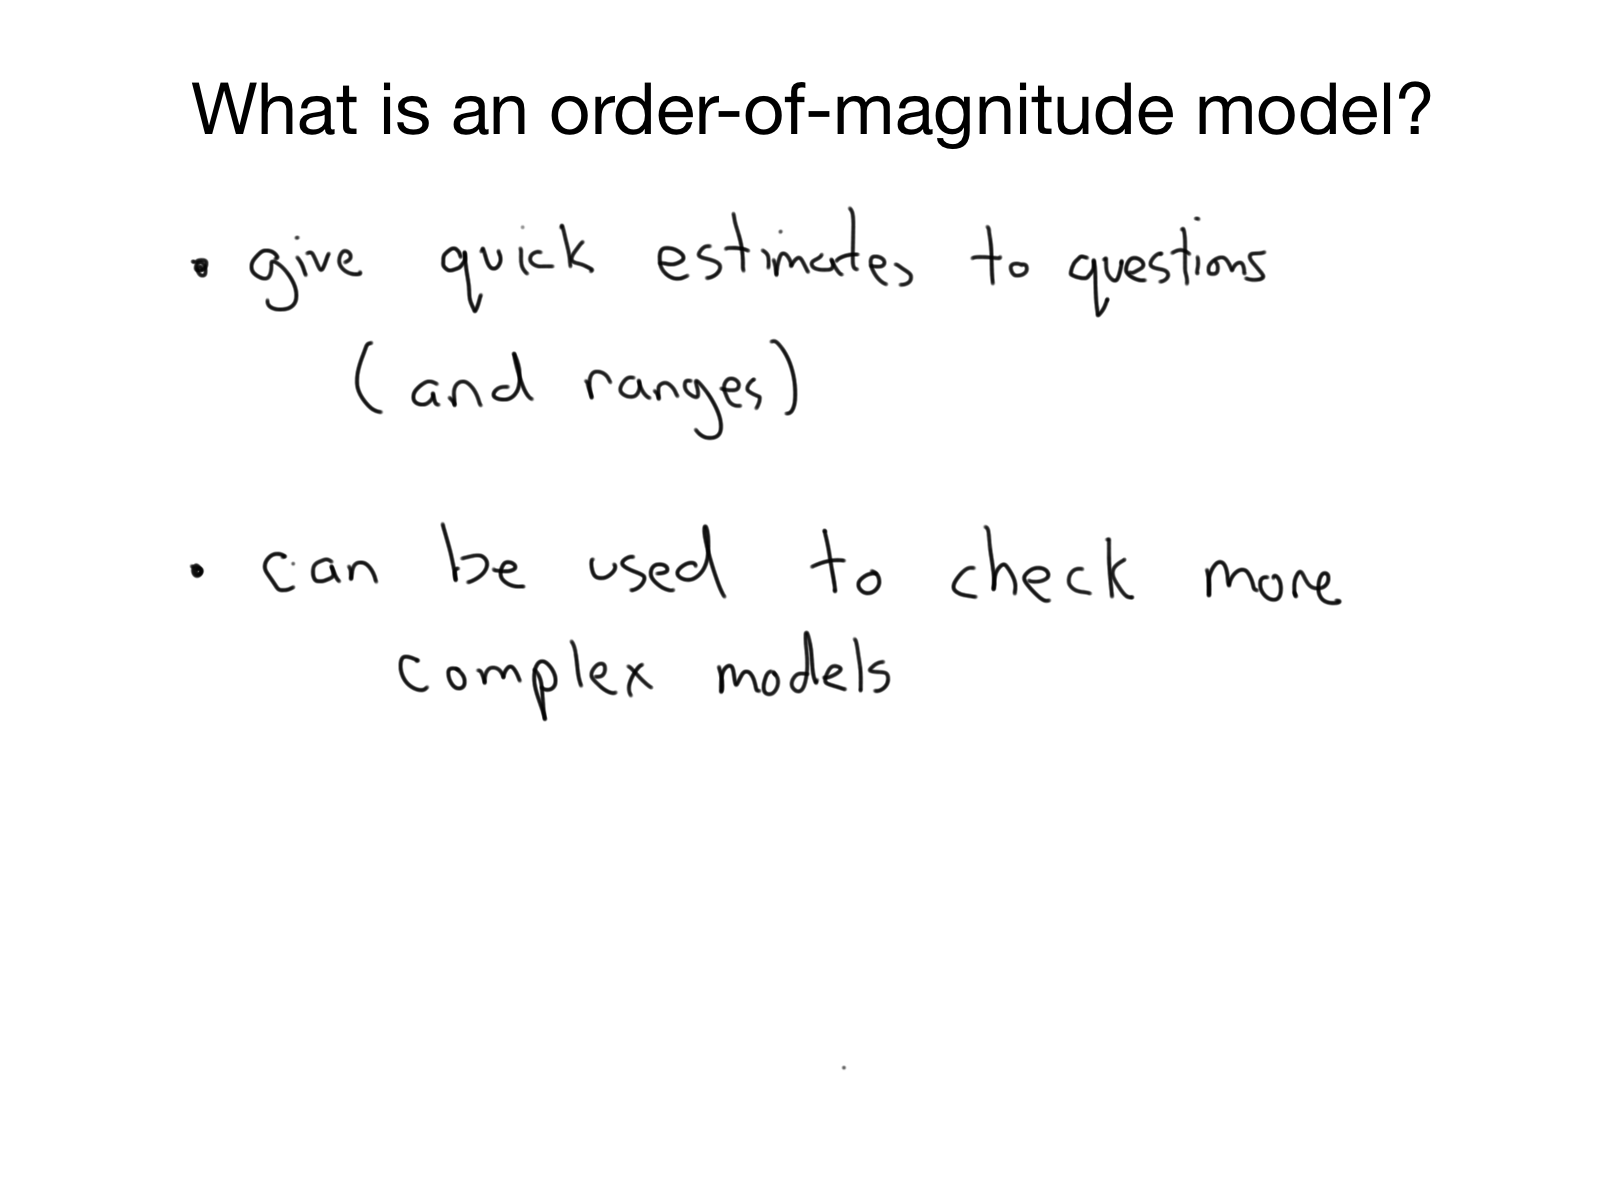 What is an order-of-magnitude model?
• give quick estimates to questions
(and ranges)
• can be used to check more
complex models